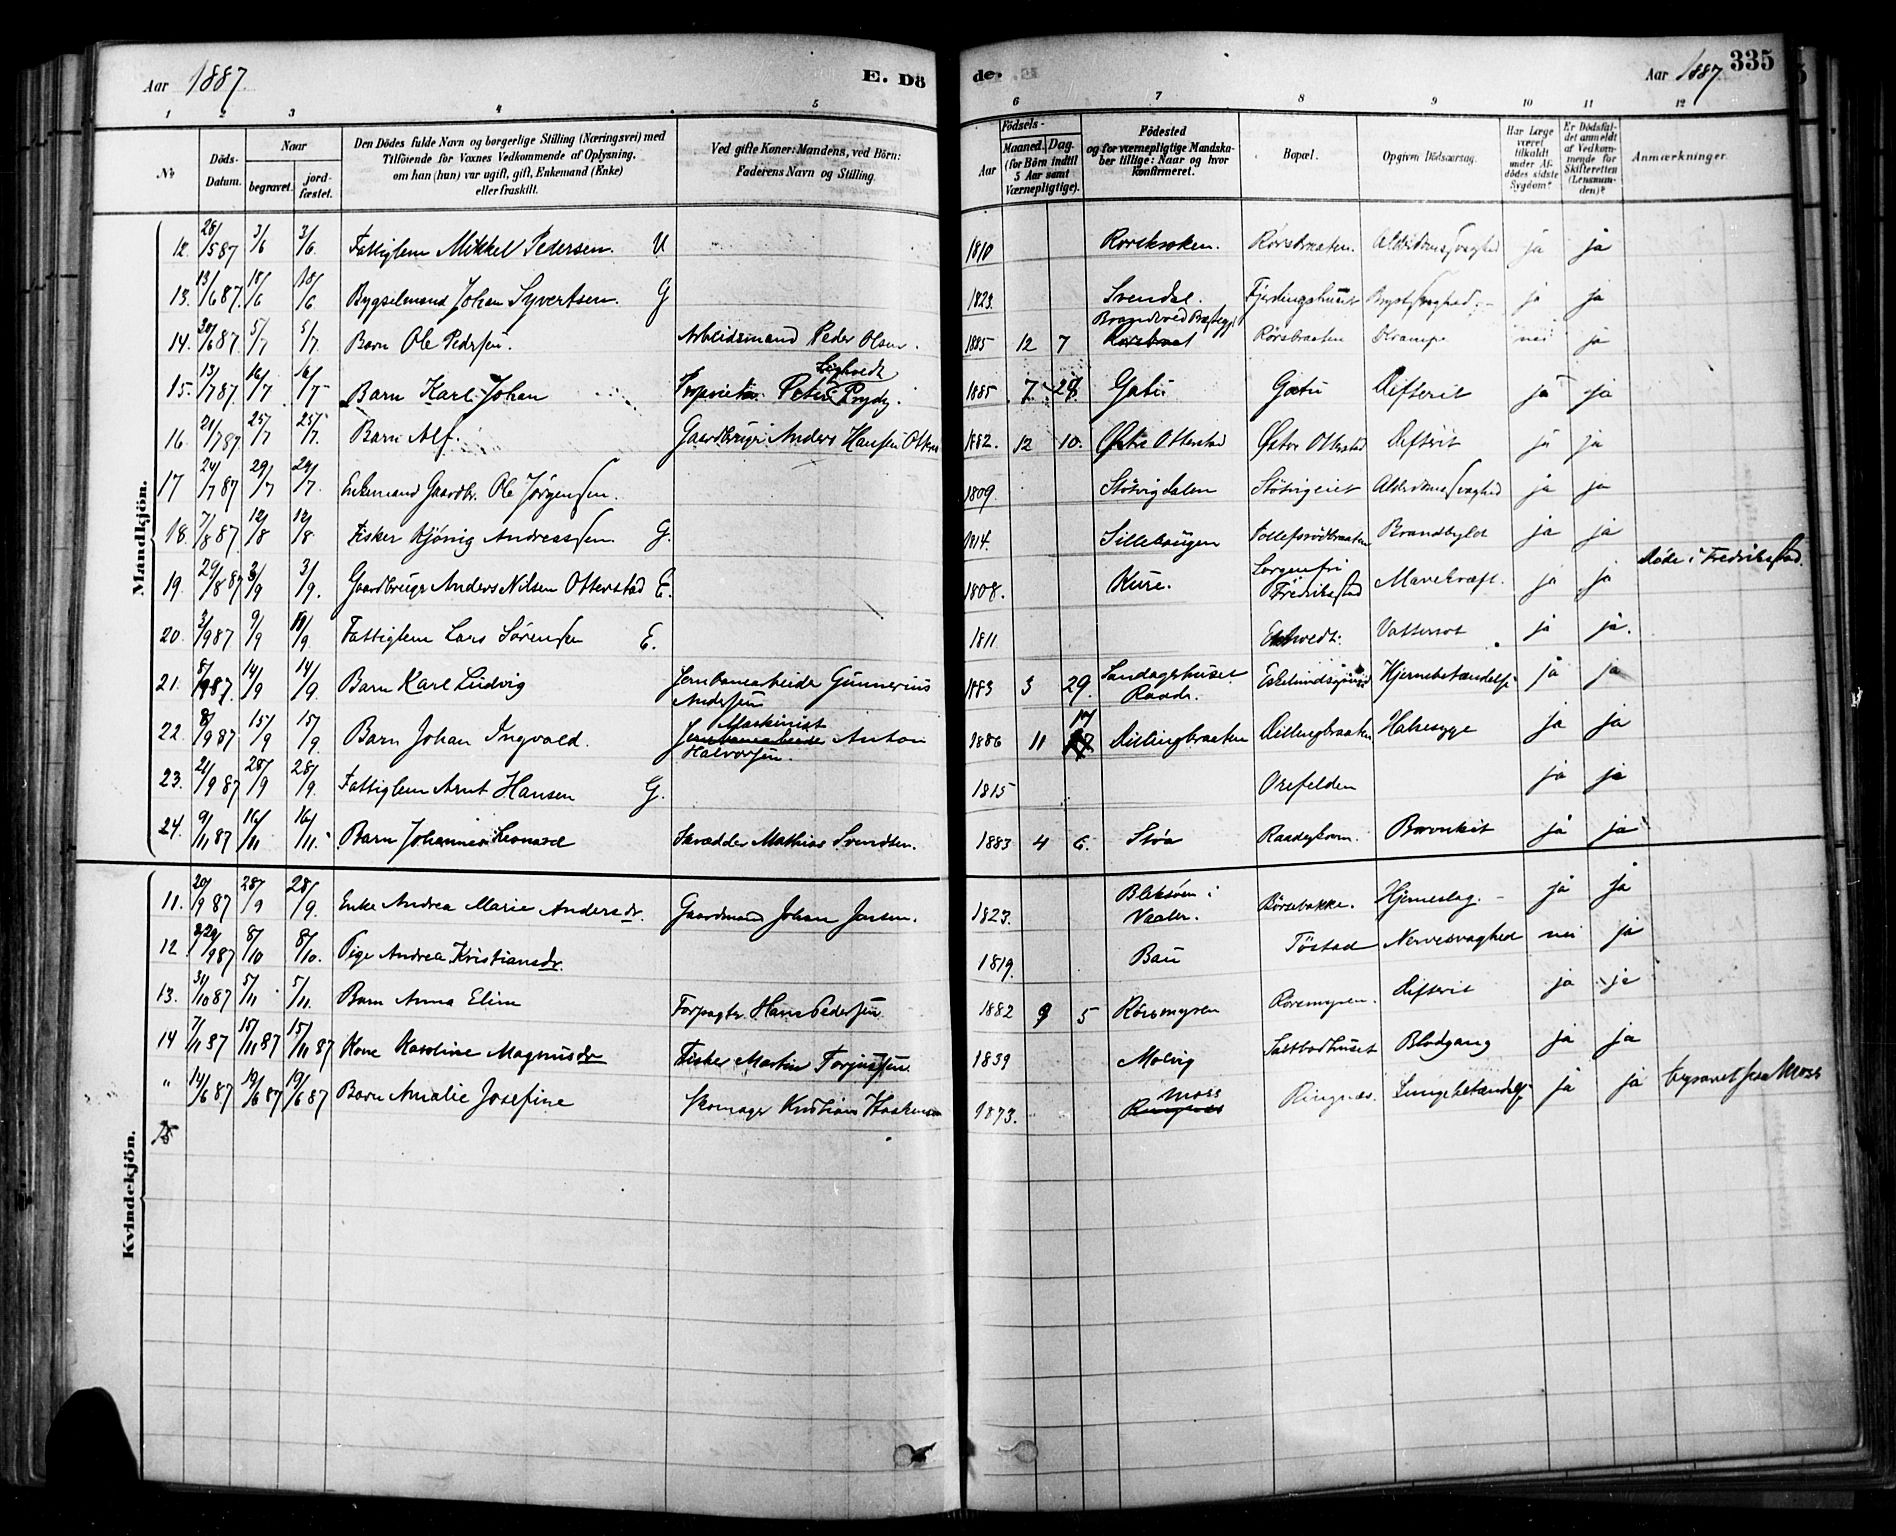 Aar 1887. E. Dö
de. Aar 1887. 335
1 2 3 4 5 6 7 8 9 10 11 12
No
Döds-Datum.
Naar
begravet.
jordfæstet.
Den Dödes fulde Navn og borgerlige Stilling (Næringsvei) med
Tilföiende for Voxnes Vedkommende af Oplysning,
om han (hun) var ugift, gift, Enkemand (Enke)
eller fraskilt.
Ved gifte Koner: Mandens, ved Börn:
Faderens Navn og Stilling.
Födsels-
Aar
Maaned. Dag.
(for Börn indtil
5 Aar samt
Værnepligtige).
Födested
og for værnepligtige Mandska-
ber tillige: Naar og hvor
konfirmeret.
Bopæl.
Opgiven Dödsaarsag.
Har Læge
været
tilkaldt
under Af-
dödes sidste
Sygdom?
Er Dödsfal-
det anmeldt
af Vedkom-
mende for
Skifteretten
(Lensman-
den)?
Anmærkninger.
Mandkjön.
12. 28/5 87 3/6 3/6 Fattiglem Mikkel Pedersen. U 1810 Rørsbraaten. Alderdomssvaghed ja ja
13. 13/6 87. 18/6 18/6 Bygselmand Johan Syvertsen. G 1823. Svendse. Fjerdingshuset Brystsvaghed ja ja
14. 30/6 87. 5/7 5/7 Barn Ole Pedersen. Arbeidsmand Peder Olsen. 1885 12 7 Rørsbraaten Krampe nei ja
15. 13/7 87. 16/7 16/7 Barn Karl Johan Proprietær Peter Leghvedt Prydz. 1885 7. 28. Gatu Gatu Difterit ja ja
16 21/7 87. 25/7 25/7. Barn Alf. Gaardbruger Anders Hansen 1882. 12 10. Østre Otterstad Østre Otterstad Difterit ja ja
17 24/7 87 29/7 29/7. Enkemand Gaardbr. Ole Jørgensen. 1809. Støtvigdalen Støtvigeiet Alderdomssvaghed ja ja
18. 7/8 87. 12/8 12/8. Fisker Kjønig Andreassen. G. 1814. Sillebaugen Tollefsrødbraaten Brandbyld ja ja
19. 29/8 87 3/9 3/9. Gaardbruger Anders Nilsen Otterstad E. 1808. Kure. Sorgenfri Fredrikstad Mavekræft. ja ja døde i Fredrikstad.
20. 3/9 87 9/9 10/9 Fattiglem Lars Sørensen E. 1811. Vattersot ja ja.
21. 8/9 87. 14/9 14/9. Barn Karl Ludvig Jernbanearbeider Gunnerius
Andersen 1883 3 29. Sandagerhuset Raade. Hjernebetændelse ja ja
22. 8/9 87 15/9 15/9. Barn Johan Ingvald. Maskinist
Jernbanearbeider Anton
Halvorsen. 1886 11 17 Dillingbraaten Dillingbraaten Halsesyge ja ja
23. 21/9 87 28/9 28/9. Fattiglem Arnt Hansen G. 1815 Orefelden ja ja
24. 9/11 87 16/11 16/11. Barn Johannes Leonard Skrædder Mathias Svendsen. 1883 4 6. Støa ja ja
Kvindekjön.
11. 20/9 87 28/9 28/9. Enke Andrea Marie Andersdr. Gaardmand Johan Jensen. 1823. Bleksøen i
Vaaler. Børsebakke. Hjerneslag. ja ja
12 29/9 87 8/10 8/10. Pige Andrea Kristiansdr. 1819. Bau Tøstad Nervesvaghed nei ja
13. 31/10 87 5/11 5/11. Barn Anna Eline Forpagter Hans Pedersen 1882 9 5 Rørsmyren Rørsmyren. Difterit ja ja
14 7/11 87 15/11 87 15/11 87 Kone Karoline Magnusdr Fisker Martin Torgussen 1839 Molvig Saltbodhuset Blodgang ja ja
" 14/6 87 19/6 87 19/6 87 Barn Amalie Josefine Skomager Kristian 1873. Moss
Ringnæs Ringnæs. Lungebetændelse ja ja begravet fra Moss
15